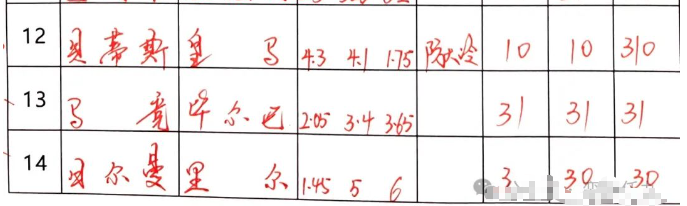 12 贝蒂斯 皇马 4.3 4.1 1.75 防大冷 10 10 310
13 马竞 毕尔巴 2.05 3.4 3.65 31 31 31
14 贝尔曼 里尔 1.45 5 6 3 30 30